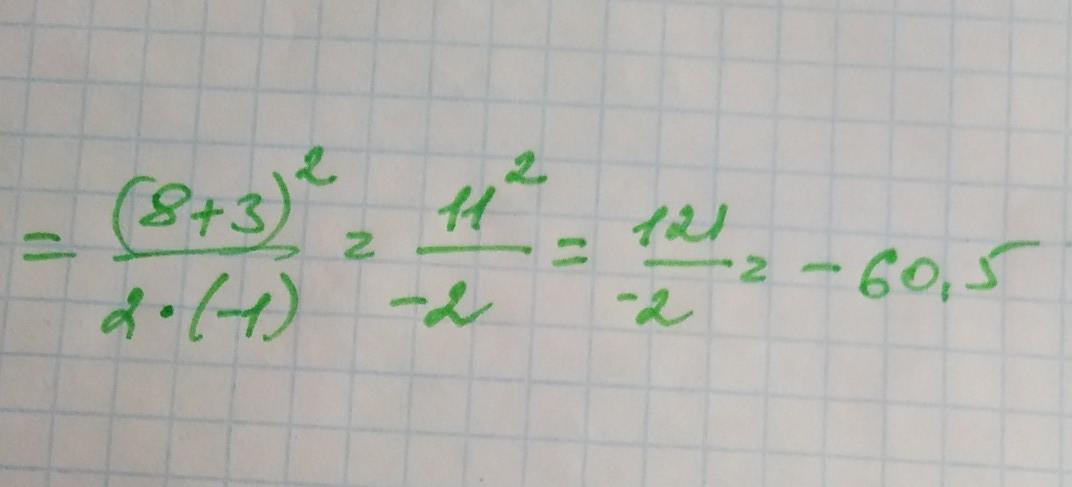 = (8+3)² / 2·(-1) = 11² / -2 = 121 / -2 = -60,5